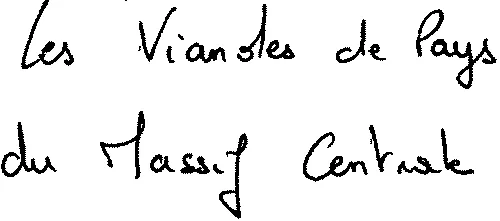 Les Viandes de Pays
du Massif Centrale